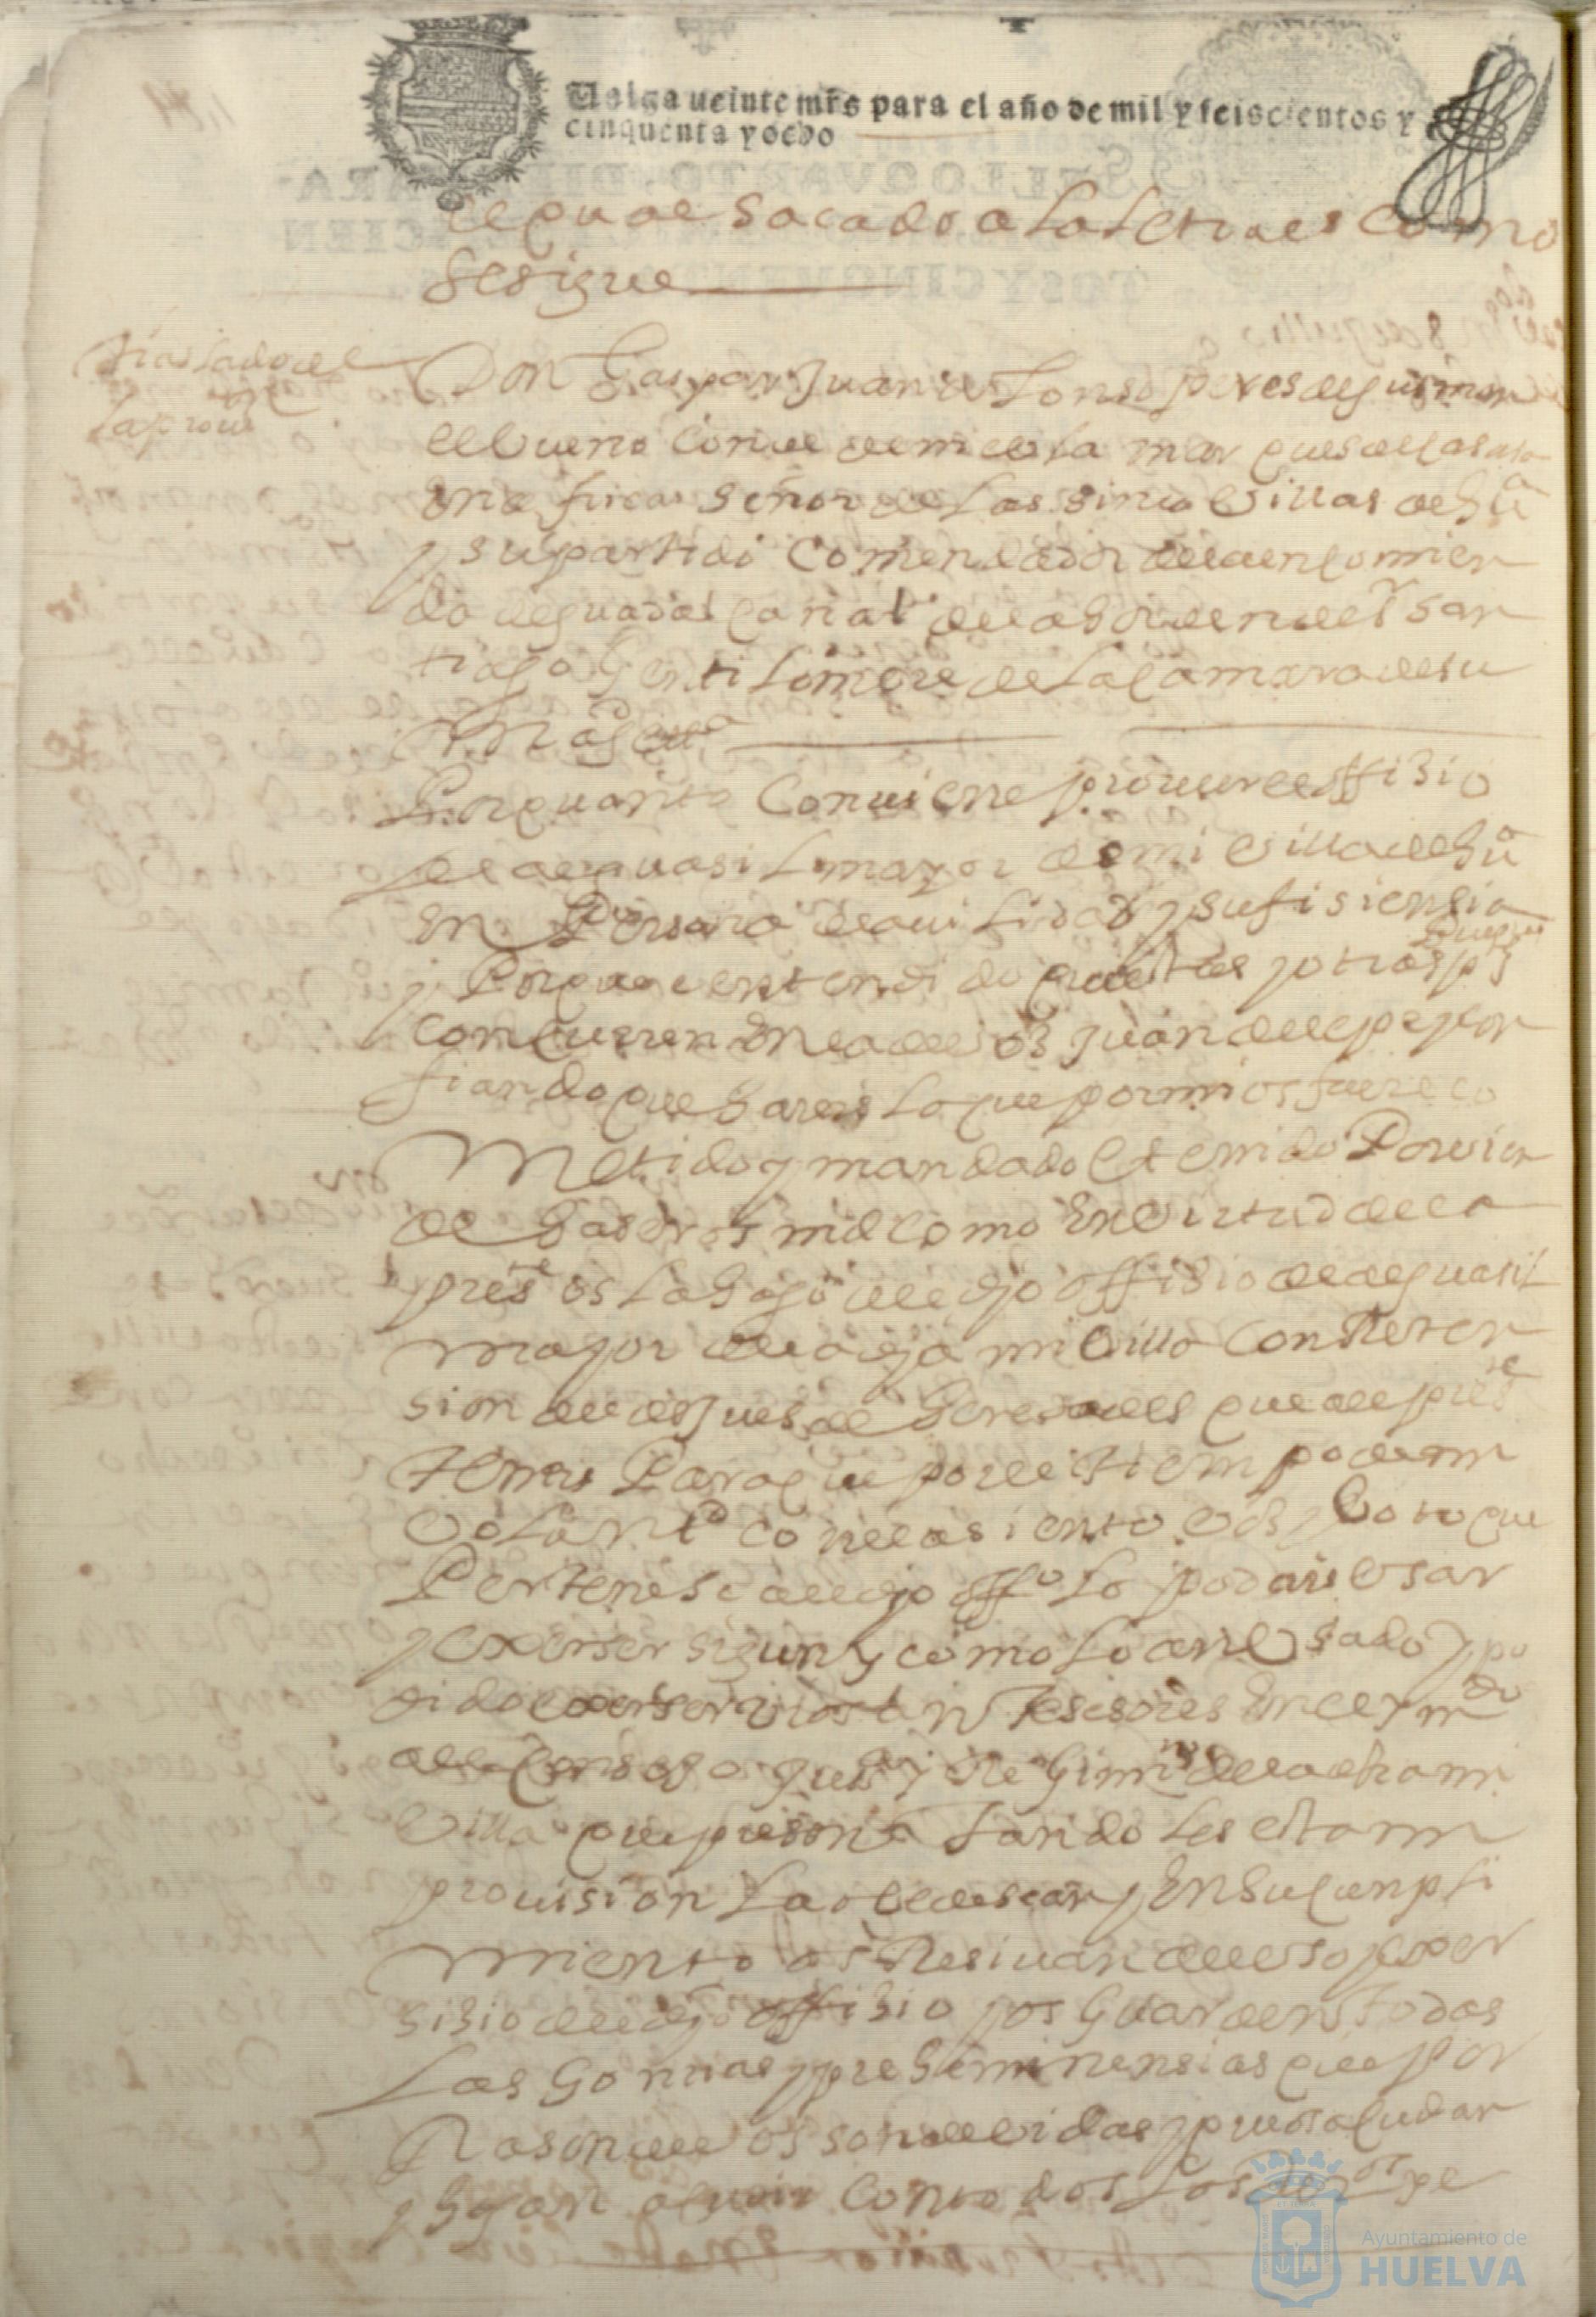 Valga veinte mrs para el año de mil y seiscientos y
cinquenta y ocho
sacado a la letra es como
se sigue
traslado del
la prou
Don Gaspar Juan Alonso peres de gusman
el bueno Conde de niebla marques de casasa
en africa Señor de las sinco Villas de
y su partido Comendador de la encomien
da de guadalcanal de la orden de sr san
tiago Gentilombre de la camara de su
magd
Por quanto Conuiene proueer el offisio
de alguasil mayor de mi villa de
En Persona de auilidad y sufisiensia
y Porque e entendido que estas y otras
Concurren en la de vos juan de
fiando que hareis lo que por mi os fuere co
metido y mandado e tenido Por vien
de haseros md como En virtud de la
preste os la hago del dho offisio de alguasil
mayor de la dha mi villa con Reten
sion de el de que al preste
teneis Para que por el tiempo de mi
voluntd con el asiento vos y voto que
Pertenese al dho offo lo podais usar
y exerser sigun y como lo an usado y po
dido exerser vros antesesores En el
del Consejo just y Regimto de la dha mi
villa que presentandoles esta mi
prouision la obedescan y En su cunpli
miento os Resiuan al uso y exer
sisio del dho offisio y os Guarden todas
las honrras y preheminensias que por
Rason de el os son deuidas y os acudan
y hagan acudir con todos los
Ayuntamiento de
HUELVA